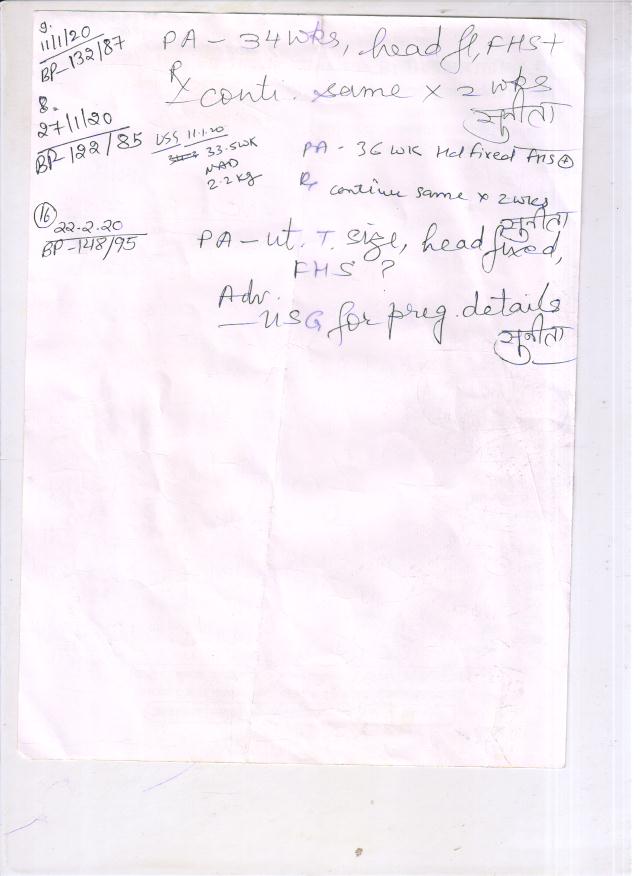 9.
11/1/20
BP-132/87
PA - 34 wks, head fl, FHS+
Rx conti. same x 2 wks
सुनीता
8.
27/1/20
BP 122/85
USS 11.1.20
33.5WK
MAD
2.2kg
PA - 36 WK Hd fixed FHS ⊕
Rx continue same x 2wks
सुनीता
16
22-2-20
BP-148/95
PA - ut. T. size, head fixed,
FHS ?
Adv.
- USG for preg. details
सुनीता